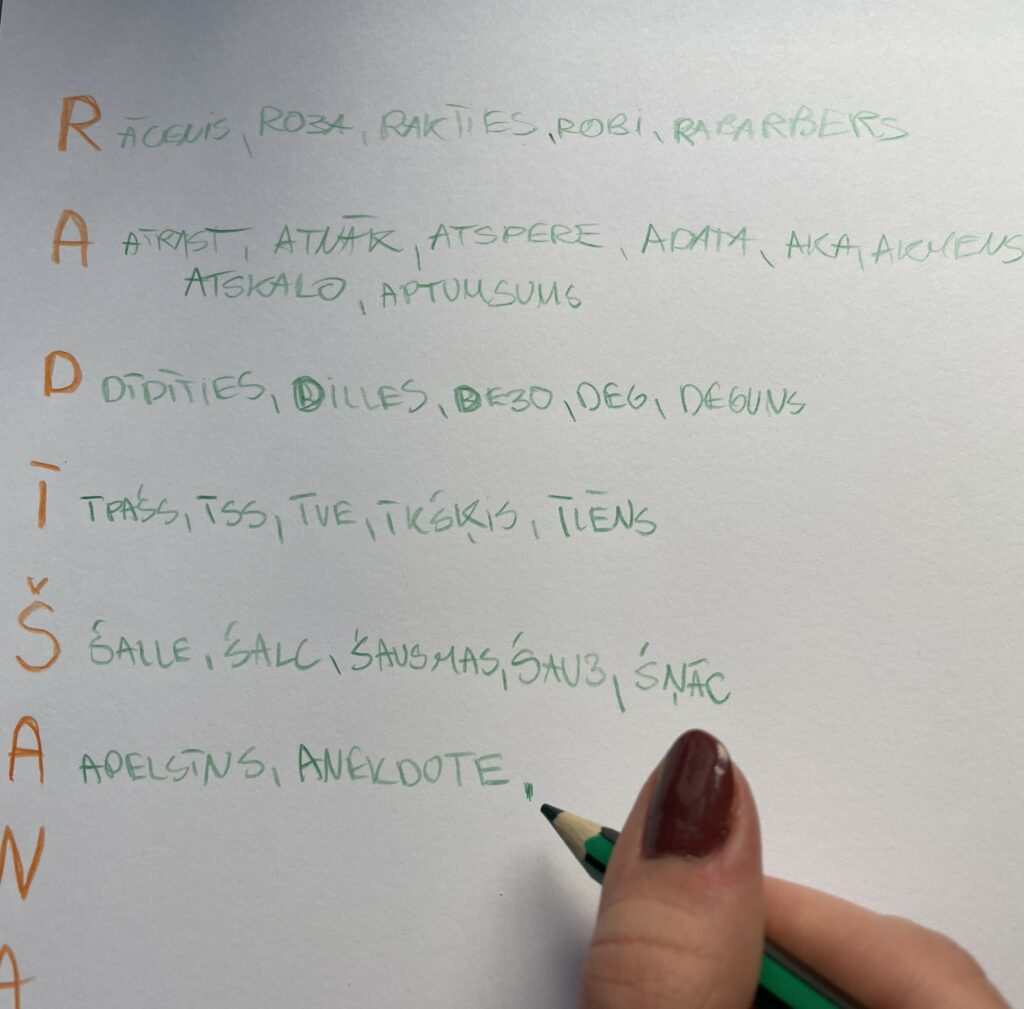 R ĀCENIS, ROZA, RAKTIES, ROBI, RABARBERS
A ATRAST, ATNĀK, ATSPERE, ADATA, AKA, AKMENS
ATSKALO, APTUMSUMS
D DĪDĪTIES, DILLES, DEZO, DEG, DEGUNS
Ī ĪPAŠS, ĪSS, ĪVE, ĪKŠĶIS, ĪLĒNS
Š ŠALLE, ŠALC, ŠAUSMAS, ŠAUJ, ŠŅĀC
A APELSĪNS, ANEKDOTE,
N
A